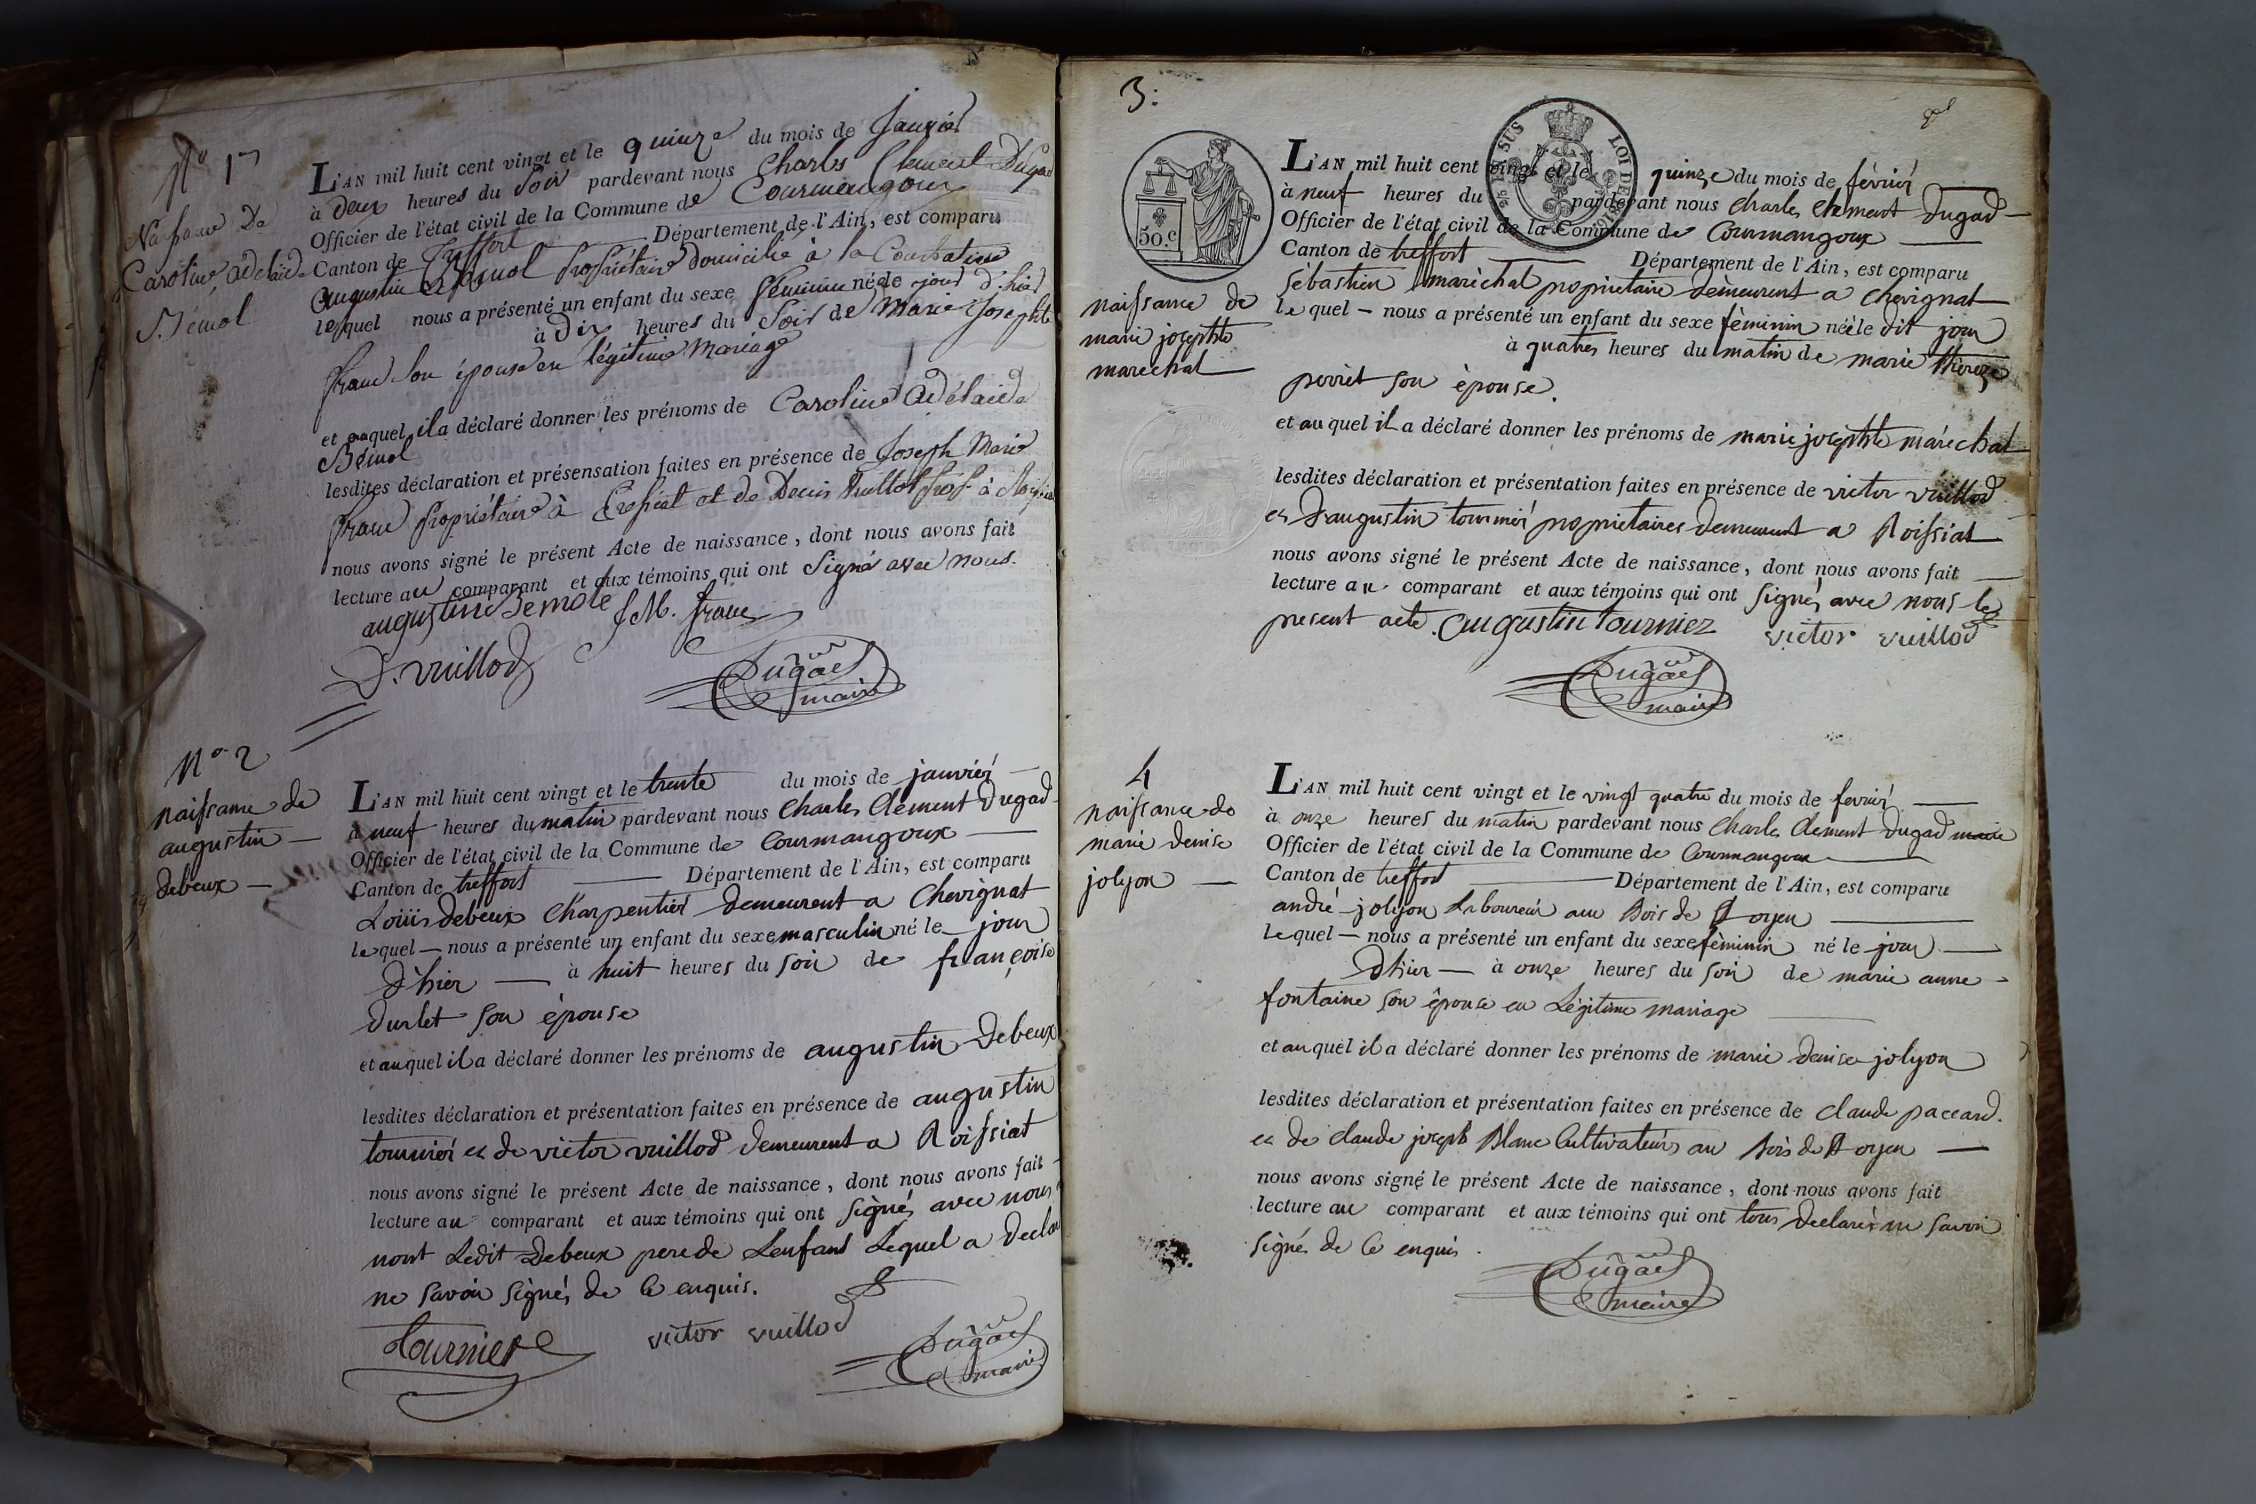 No 1er
Naissance De
Caroline adelaide
Bémol
L'AN mil huit cent vingt et le quinze du mois de Janvier
à deux heures du Soir pardevant nous Charles Clement Dugad
Officier de l'état civil de la Commune de Courmangoux
Canton de Treffort Département de l'Ain, est comparu
augustin Bémol propriétaire domicilié à la Courbatière
lequel nous a présenté un enfant du sexe féminin née le jour d'hier
à Dix heures du Soir de Marie Josephte
franc Son épouse en légitime Mariage
et auquel il a déclaré donner les prénoms de Caroline Adélaide
Bémol
lesdites déclaration et présensation faites en présence de Joseph Marie
franc propriétaire à et de Denis Vuillot prop. à
nous avons signé le présent Acte de naissance, dont nous avons fait
lecture au comparant et aux témoins qui ont Signé avec nous.
augustin Bemole J M. franc
D. vuillod
Dugad
maire
No 2
naissance de
augustin
debeux
L'AN mil huit cent vingt et le trente du mois de janvier
à neuf heures du matin pardevant nous Charles Clément Dugad
Officier de l'état civil de la Commune de Courmangoux
Canton de treffort Département de l'Ain, est comparu
Loüis debeux Charpentier demeurent a Chevignat
lequel nous a présenté un enfant du sexe masculin né le jour
d'hier à huit heures du soir de françoise
durlet son épouse
et auquel il a déclaré donner les prénoms de augustin debeux
lesdites déclaration et présentation faites en présence de augustin
tournier et de victor vuillod demeurent a Roissiat
nous avons signé le présent Acte de naissance, dont nous avons fait
lecture au comparant et aux témoins qui ont signés avec nous
nont Ledit Debeux pere de Lenfant Lequel a
ne savoir signés de ce enquis.
Tournier victor vuillod
Dugad
maire
3:
8
50. C
LOI DE 1816
EN SUS
naissance de
marie josephte
marechal
L'AN mil huit cent vingt et le quinze du mois de février
à neuf heures du pardevant nous Charles Clement Dugad
Officier de l'état civil de la Commune de Courmangoux
Canton de treffort Département de l'Ain, est comparu
Sébastien maréchal propriétaire demeurent a Chevignat
lequel nous a présenté un enfant du sexe féminin née le dit jour
à quatres heures du matin de marie thereze
perret son épouse.
et auquel il a déclaré donner les prénoms de marie josephte maréchal
lesdites déclaration et présentation faites en présence de victor vuillod
et d'augustin tournier propriétaires demeurent a Roissiat
nous avons signé le présent Acte de naissance, dont nous avons fait
lecture au comparant et aux témoins qui ont signés avec nous le
present acte. augustin Tournier victor vuillod
Dugad
maire
4
naissance de
marie denise
jolyon
L'AN mil huit cent vingt et le vingt quatre du mois de fevrier
à onze heures du matin pardevant nous Charles Clement Dugad maire
Officier de l'état civil de la Commune de Courmangoux
Canton de treffort Département de l'Ain, est comparu
andré jolyon Laboureur au Bois de
lequel nous a présenté un enfant du sexe féminin né le jour
d'hier à onze heures du soir de marie anne
fontaine son épouse en Légitime mariage
et auquel il a déclaré donner les prénoms de marie denise jolyon
lesdites déclaration et présentation faites en présence de claude paccard.
et de claude joseph Blanc Cultivateurs au Bois de
nous avons signé le présent Acte de naissance, dont nous avons fait
lecture au comparant et aux témoins qui ont tous declarés ne savoir
signés de ce enquis.
Dugad
maire